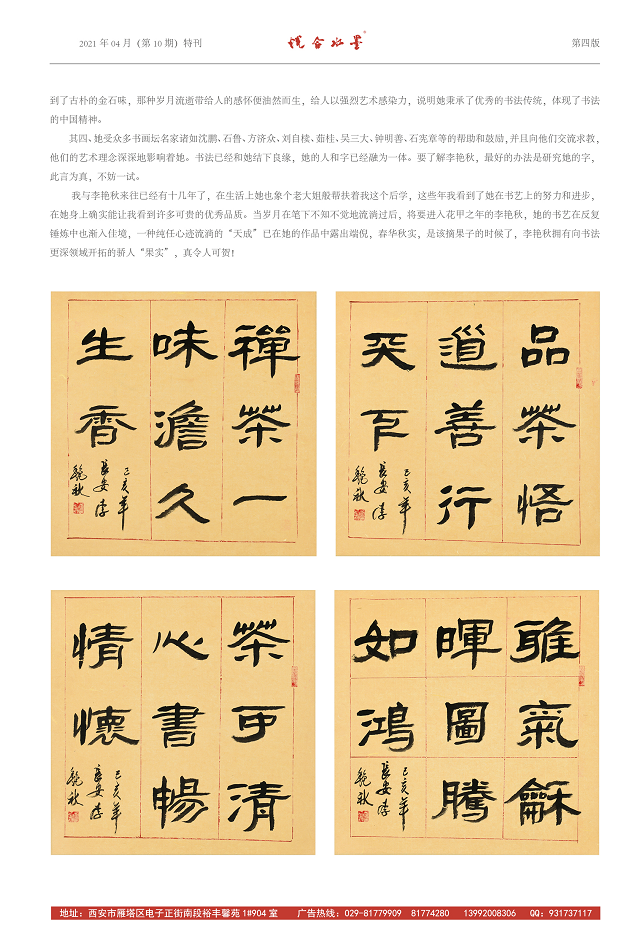 2021 年 04 月（第 10 期）特刊
第四版
到了古朴的金石味，那种岁月流逝带给人的感怀便油然而生，给人以强烈艺术感染力，说明她秉承了优秀的书法传统，体现了书法
的中国精神。
其四、她受众多书画坛名家诸如沈鹏、石鲁、方济众、刘自椟、茹桂、吴三大、钟明善、石宪章等的帮助和鼓励，并且向他们交流求教，
他们的艺术理念深深地影响着她。书法已经和她结下良缘，她的人和字已经融为一体。要了解李艳秋，最好的办法是研究她的字，
此言为真，不妨一试。
我与李艳秋来往已经有十几年了，在生活上她也象个老大姐般帮扶着我这个后学，这些年我看到了她在书艺上的努力和进步，
在她身上确实能让我看到许多可贵的优秀品质。当岁月在笔下不知不觉地流淌过后，将要进入花甲之年的李艳秋，她的书艺在反复
锤炼中也渐入佳境，一种纯任心迹流淌的“天成”已在她的作品中露出端倪，春华秋实，是该摘果子的时候了，李艳秋拥有向书法
更深领域开拓的骄人“果实”，真令人可贺！
禪茶一
味澹久
生香
己亥年
長安李
艷秋
品茶悟
道善行
天下
己亥年
長安李
艷秋
茶可清
心書暢
情懷
己亥年
長安李
艷秋
雅氣龢
暉圖騰
如鴻
己亥年
長安李
艷秋
地址：西安市雁塔区电子正街南段裕丰馨苑1#904室 广告热线：029-81779909 81774280 13992008306 QQ：931737117